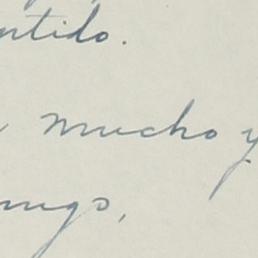 ntido.
mucho y
migo,